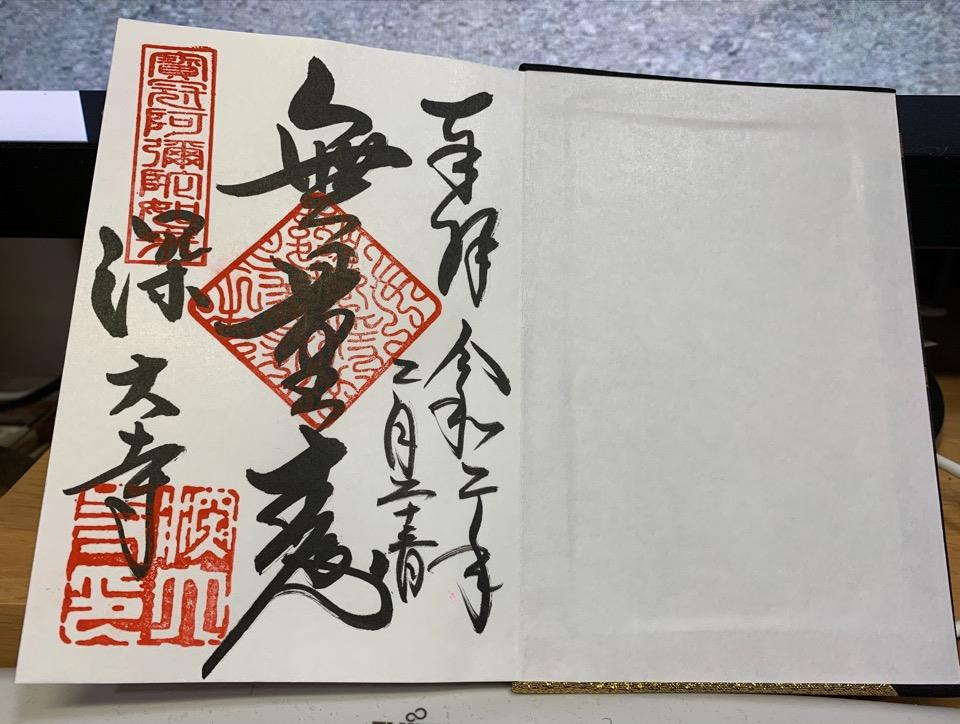 奉拝　令和二年
二月二十三日
無量寿
寶冠阿彌陀如来
深大寺
深大寺印